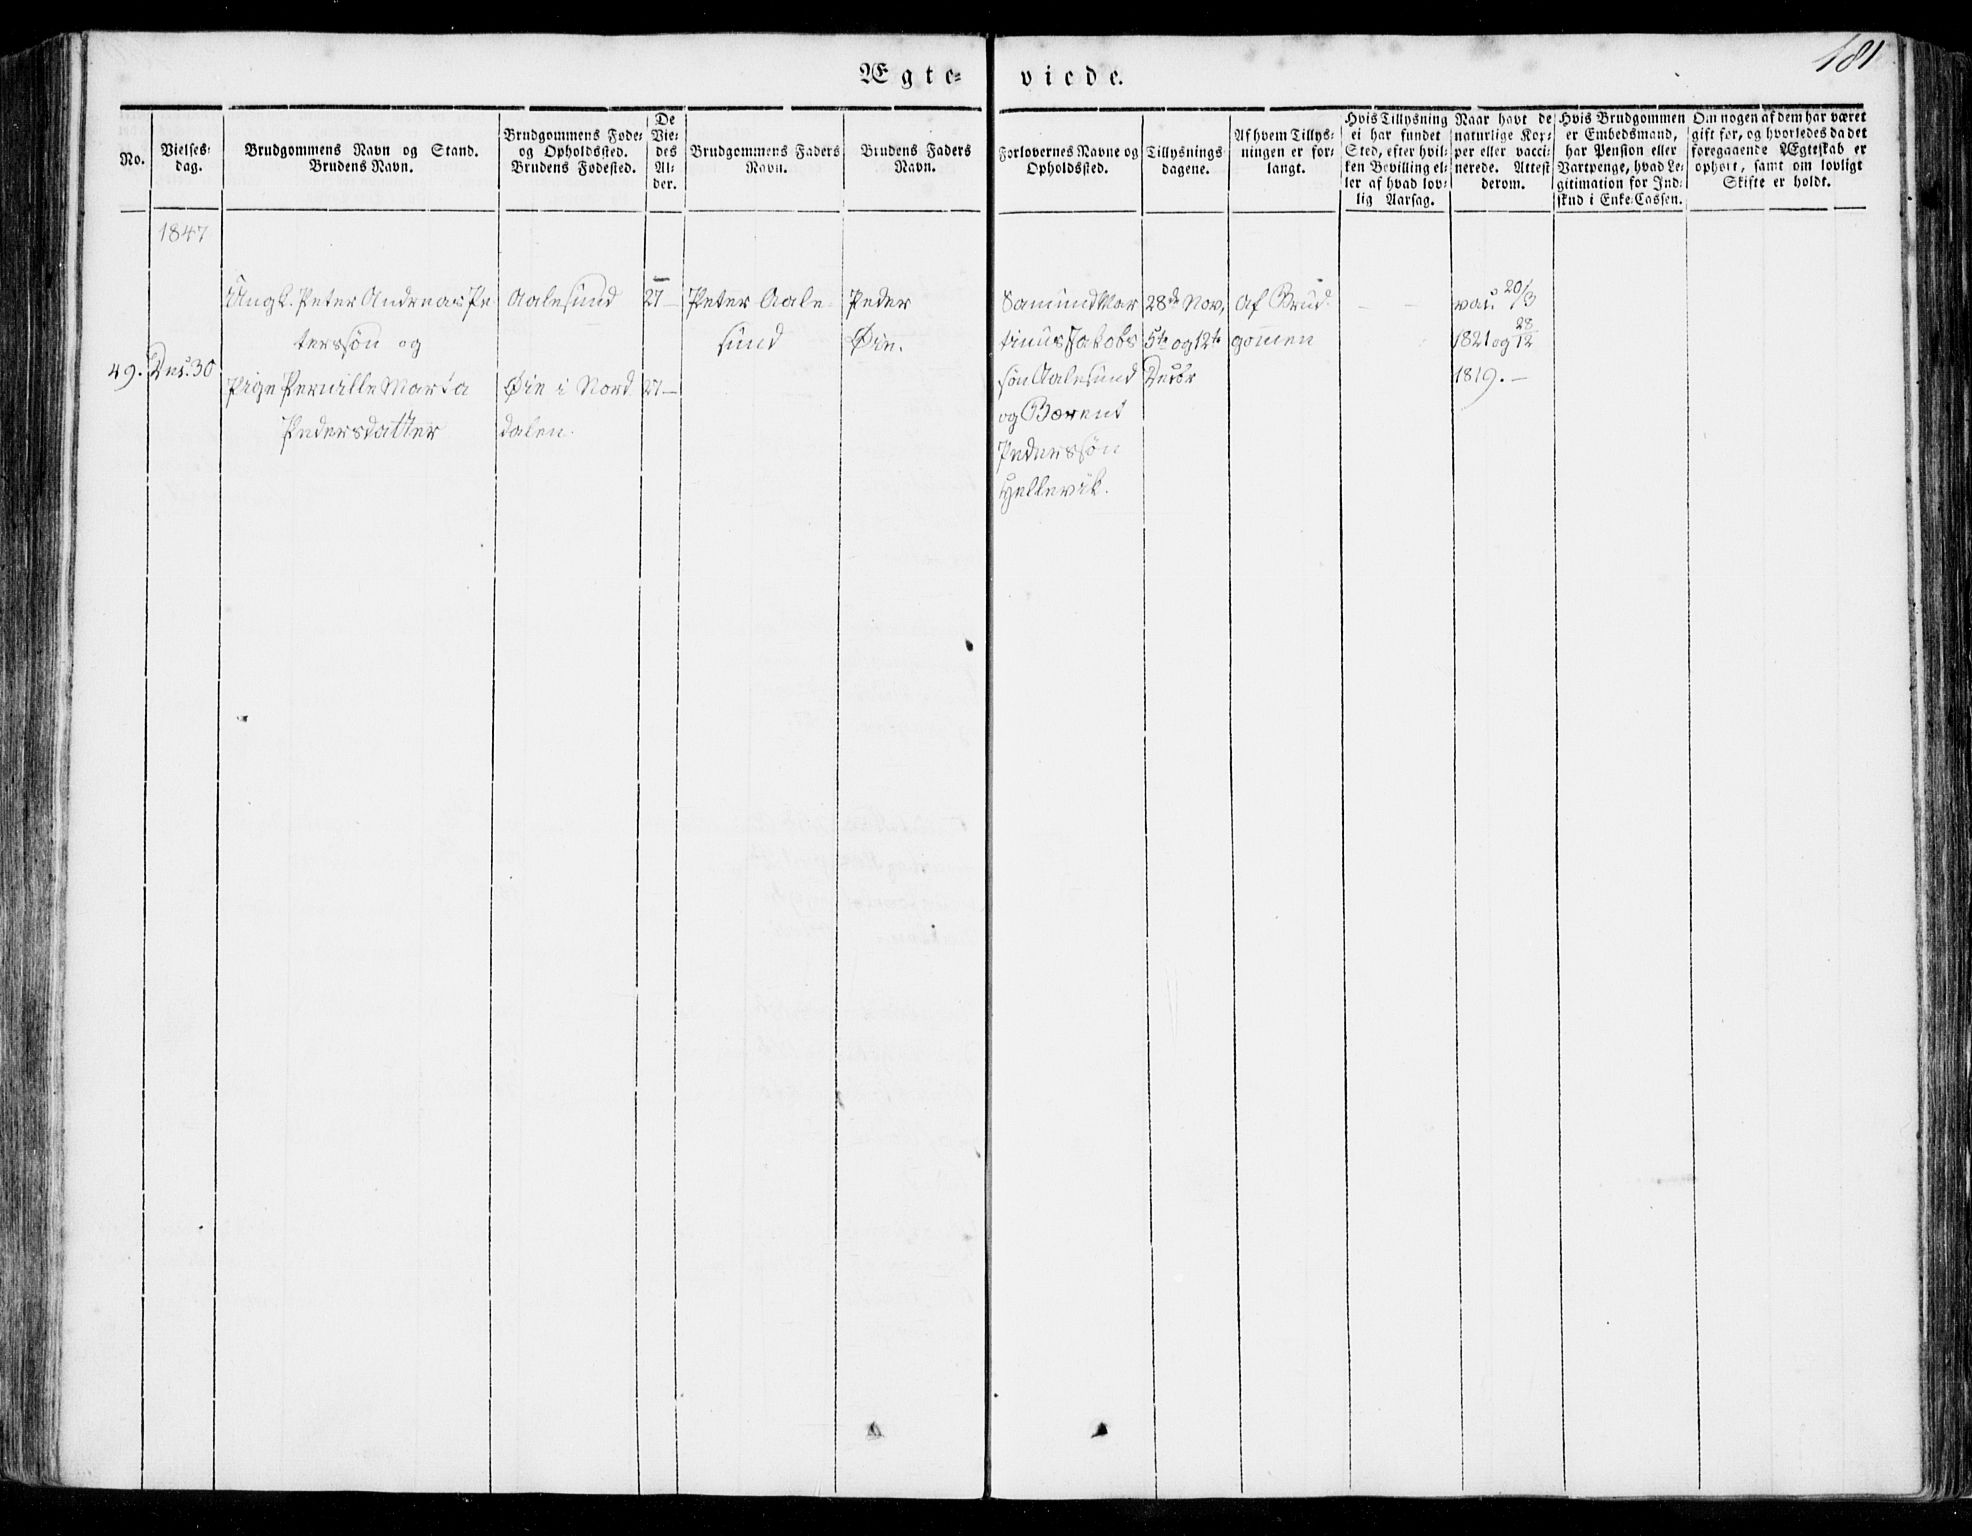 181
Ægte-
viede.
No.
Vielses-
dag.
Brudgommens Navn og Stand.
Brudens Navn.
Brudgommens Føde-
og Opholdssted.
Brudens Fødested.
De
Vie-
des
Al-
der.
Brudgommens Faders
Navn.
Brudens Faders
Navn.
Forlovernes Navne og
Opholdssted.
Tillysnings
dagene.
Af hvem Tillys-
ningen er for-
langt.
Hvis Tillysning
ei har fundet
Sted, efter hvil-
ken Bevilling el-
ler af hvad lov-
lig Aarsag.
Naar havt de
naturlige Kop-
per eller vacci-
nerede. Attest
derom.
Hvis Brudgommen
er Embedsmand,
har Pension eller
Vartpenge, hvad Le-
gitimation for Ind-
skud i Enke-Cassen.
Om nogen af dem har været
gift før, og hvorledes da det
foregaaende Ægteskab er
ophørt, samt om lovligt
Skifte er holdt.
1847
49. Dec. 30
Ungk. Peter Andreas Pe
terssøn og
Pige Pernille Marta
Pedersdatter
Aalesund
Øie i Nord
dalen.
27
27
Peter Aale
sund
Peder
Øie.
Samund Mar
tinus Jakobs
søn Aalesund
og Bærent
Pederssøn
Hellevik.
28de Nov,
5te og 12te
Decbr
Af Brud-
gommen
vac. 20/3
1821 og 28/12
1819.